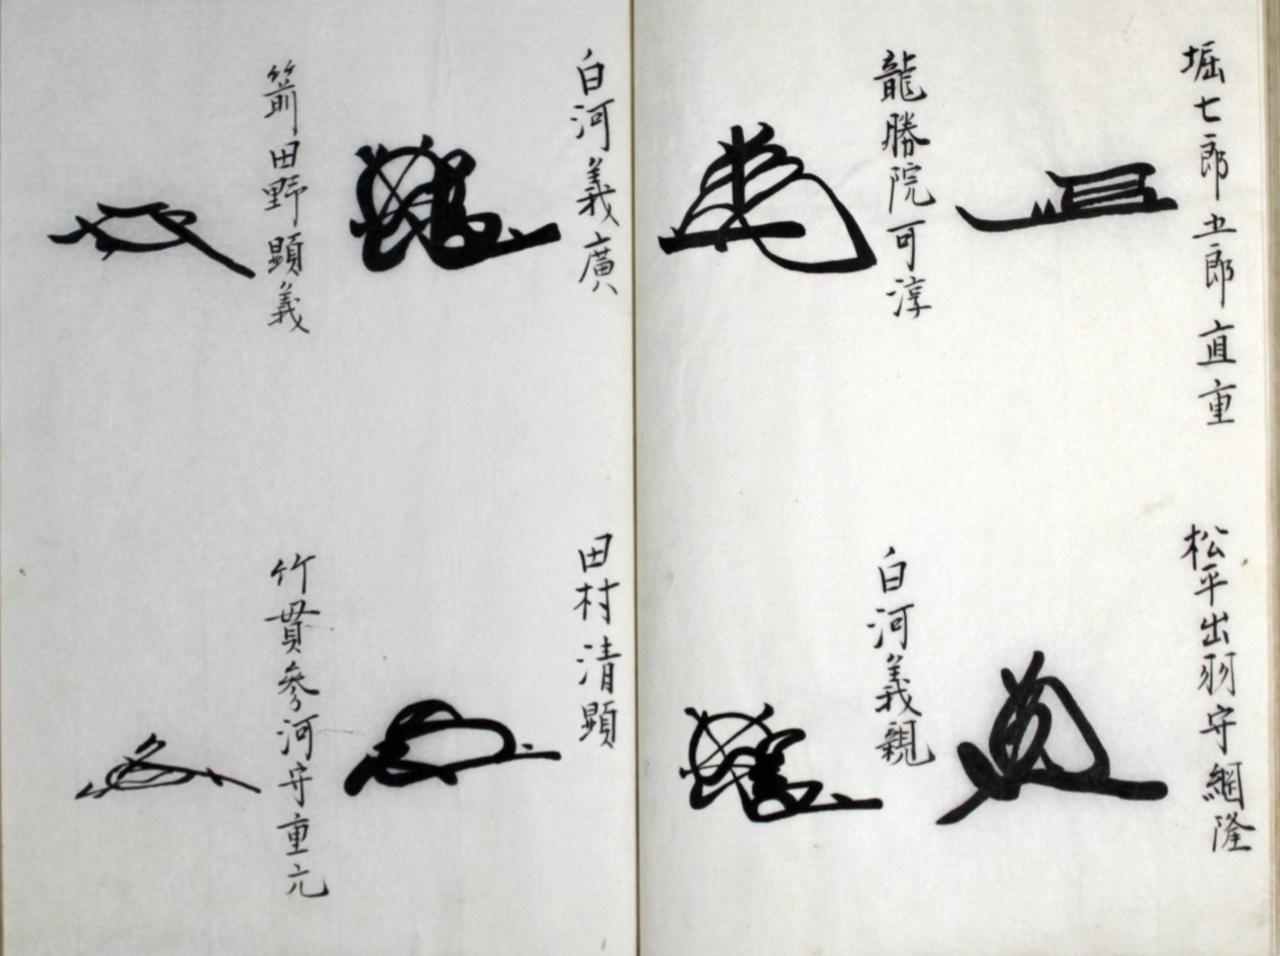 堀七郎五郎直重
松平出羽守綱隆
龍勝院可淳
白河義親
白河義廣
田村清顕
箭田野顕義
竹貫参河守重元